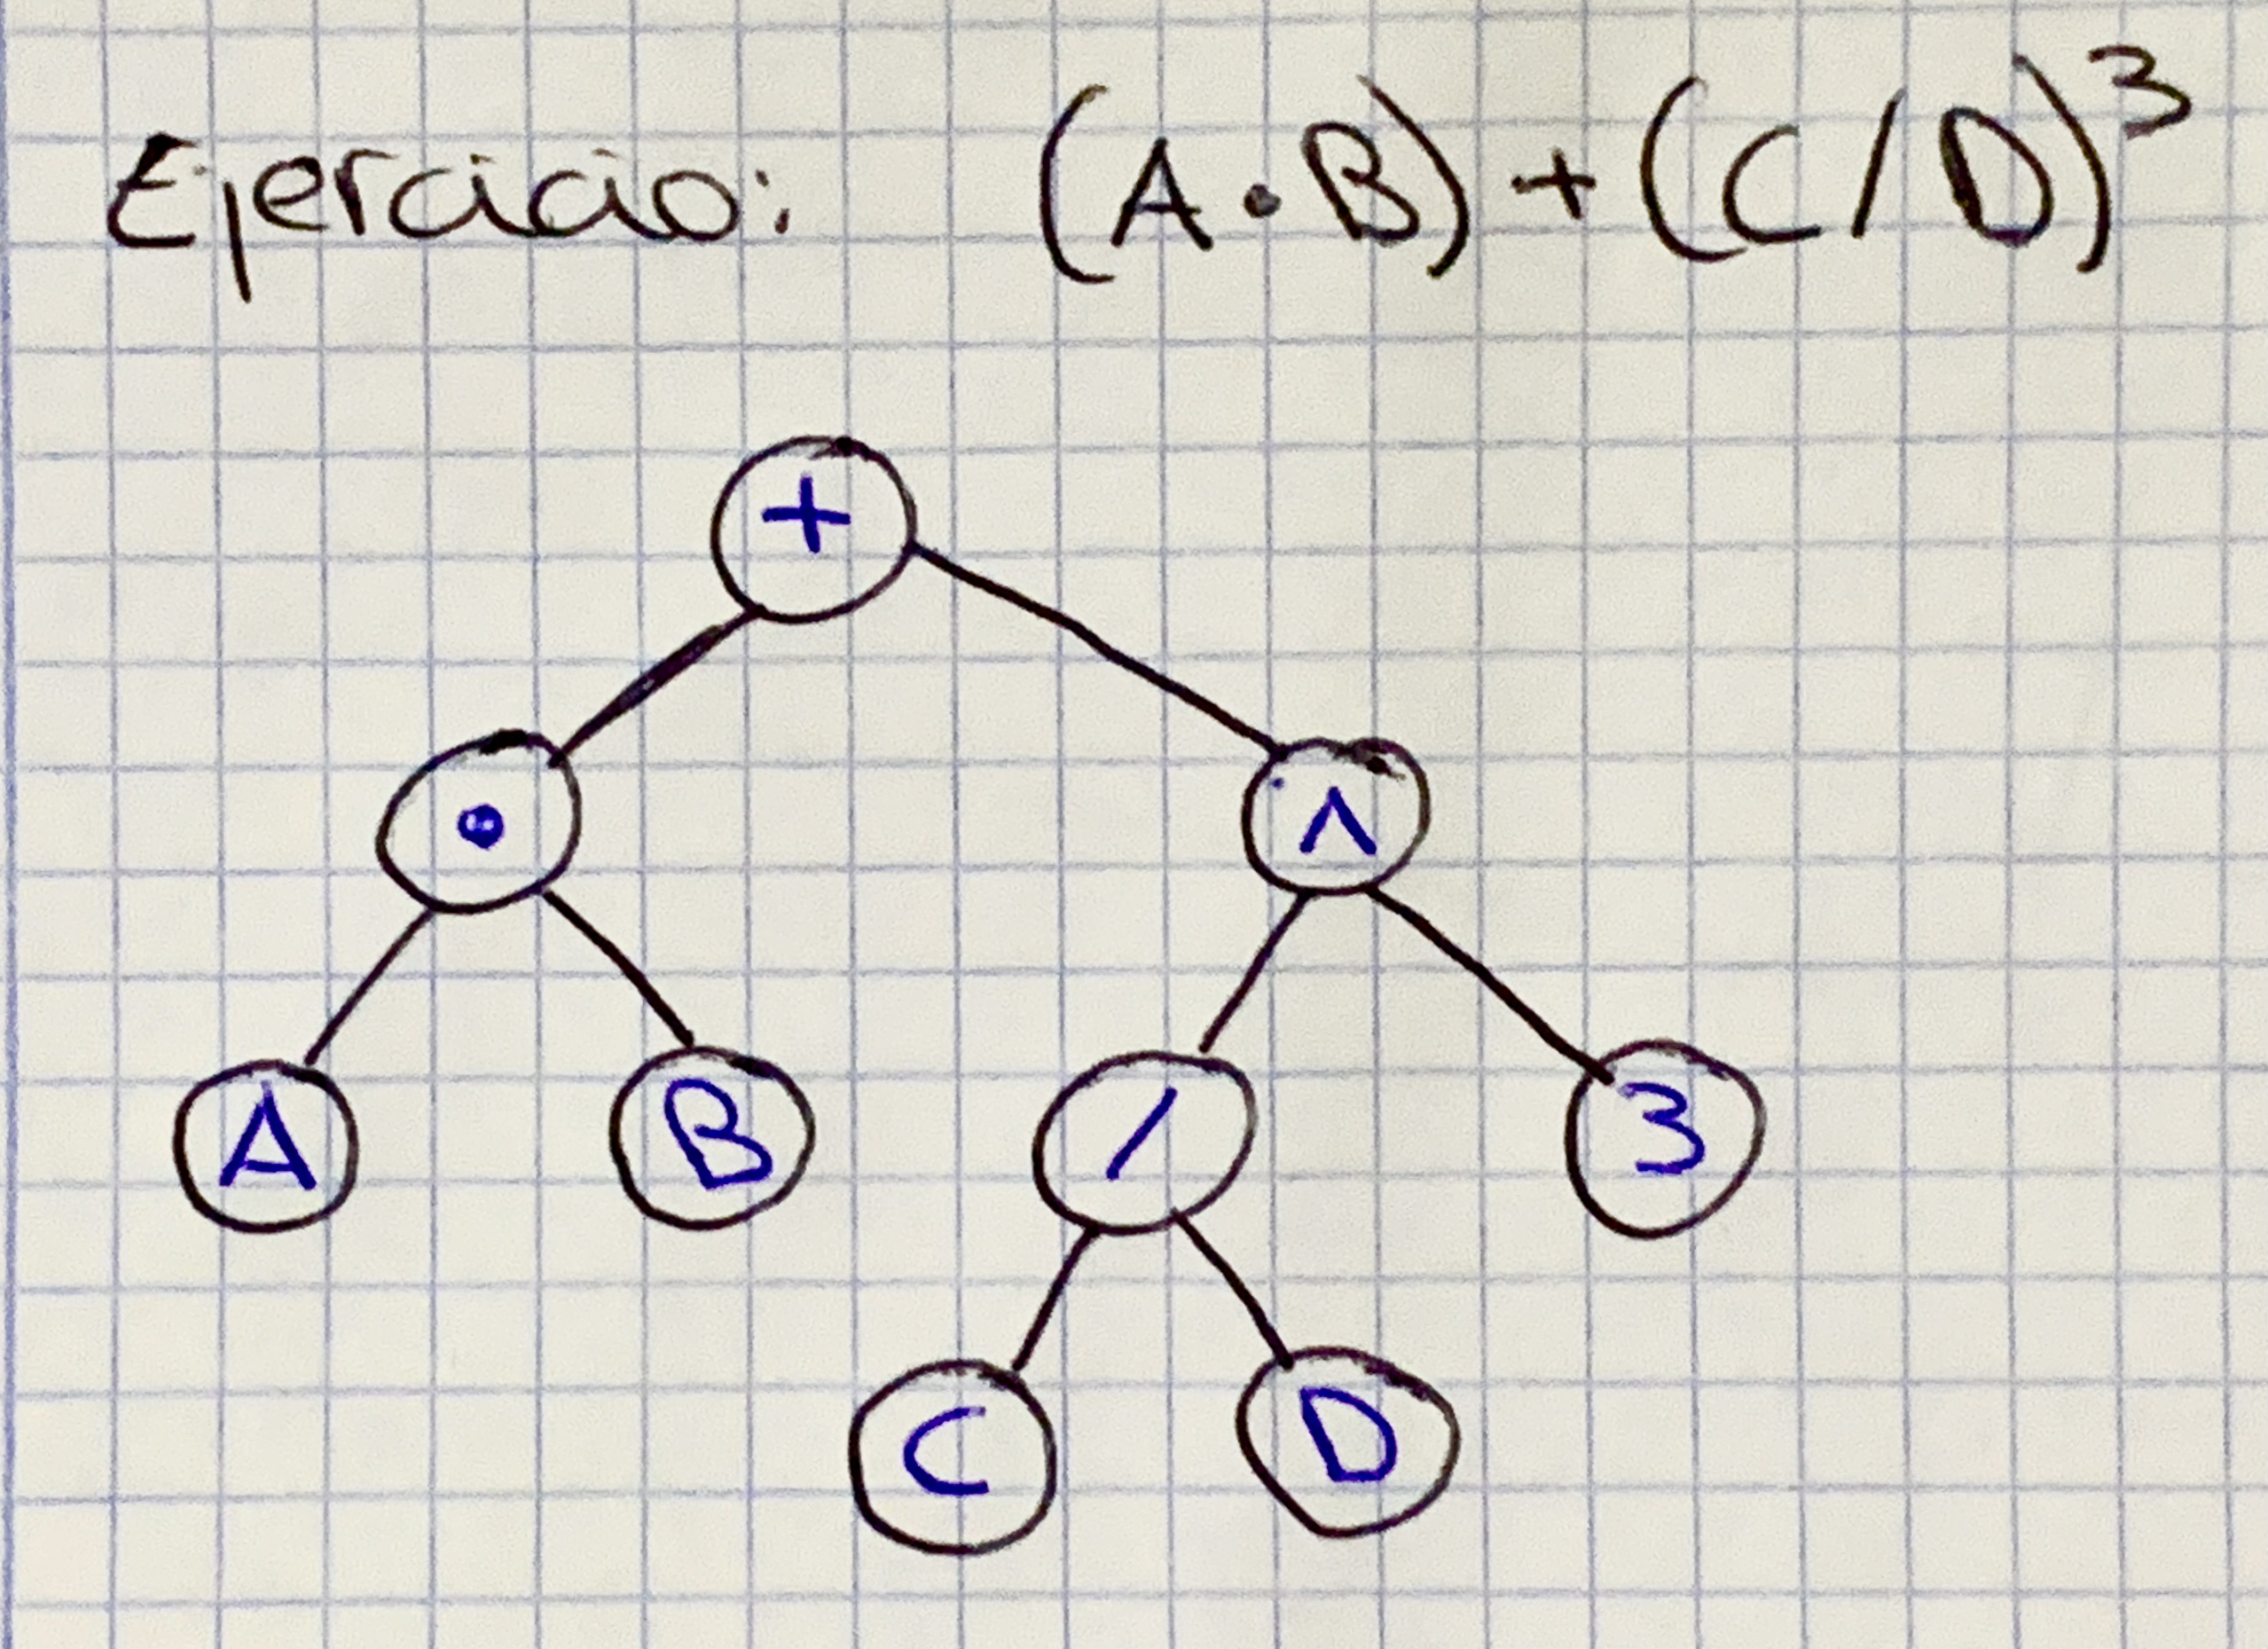 Ejercicio: (A•B)+(C/D)³
+
• ^
A B / 3
C D